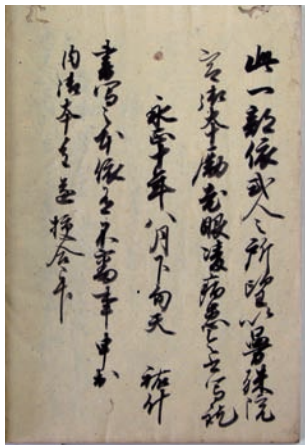 此一部依或人之所望以曼殊院
宮御本励老眼凌病患令書写訖
永正十年八月下旬天 祐什
書写之本依有不審事申出
内御本令遂挍合了